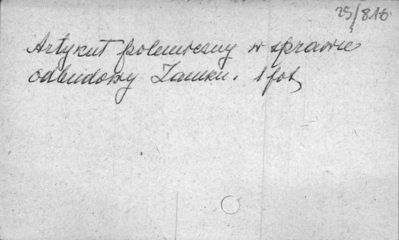 25/816
Artykuł polemiczny w sprawie
odbudowy Zamku. 1 fot,